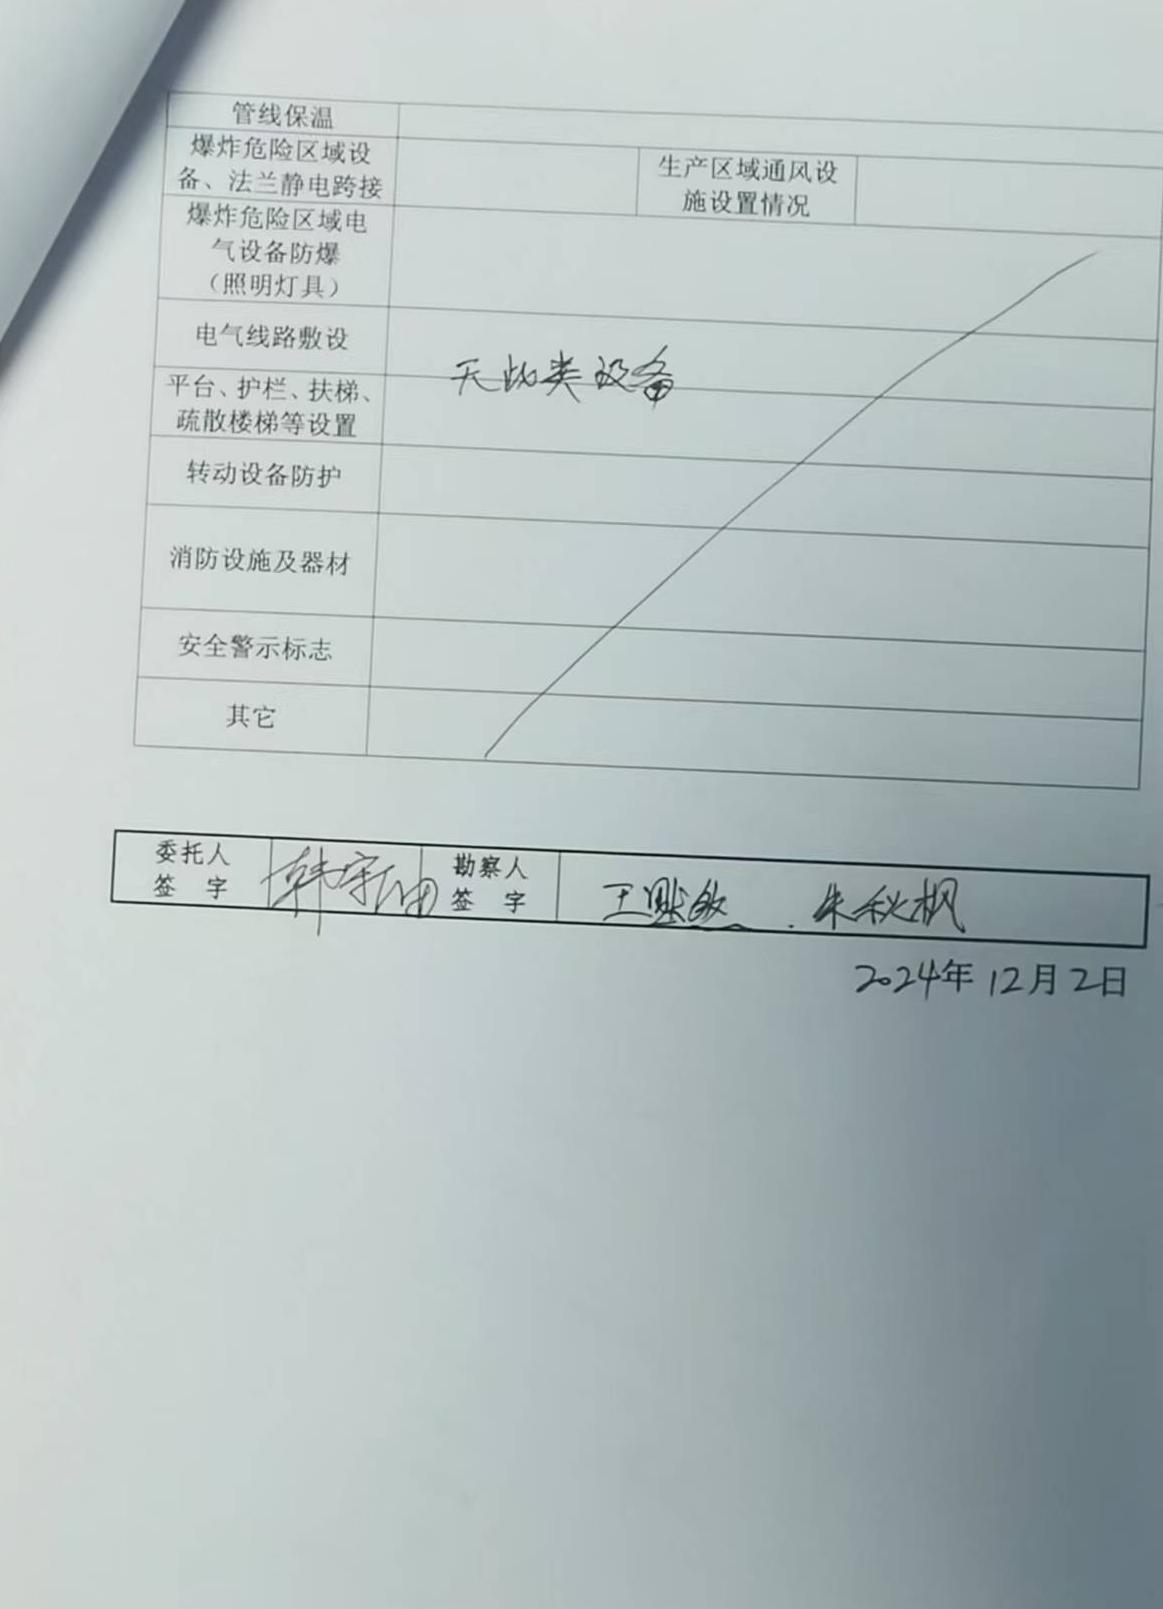 管线保温
爆炸危险区域设
备、法兰静电跨接
生产区域通风设
施设置情况
爆炸危险区域电
气设备防爆
（照明灯具）
电气线路敷设
无此类设备
平台、护栏、扶梯、
疏散楼梯等设置
转动设备防护
消防设施及器材
安全警示标志
其它
委托人
签 字
韩宇
勘察人
签 字
王 朱秋枫
2024年12月2日